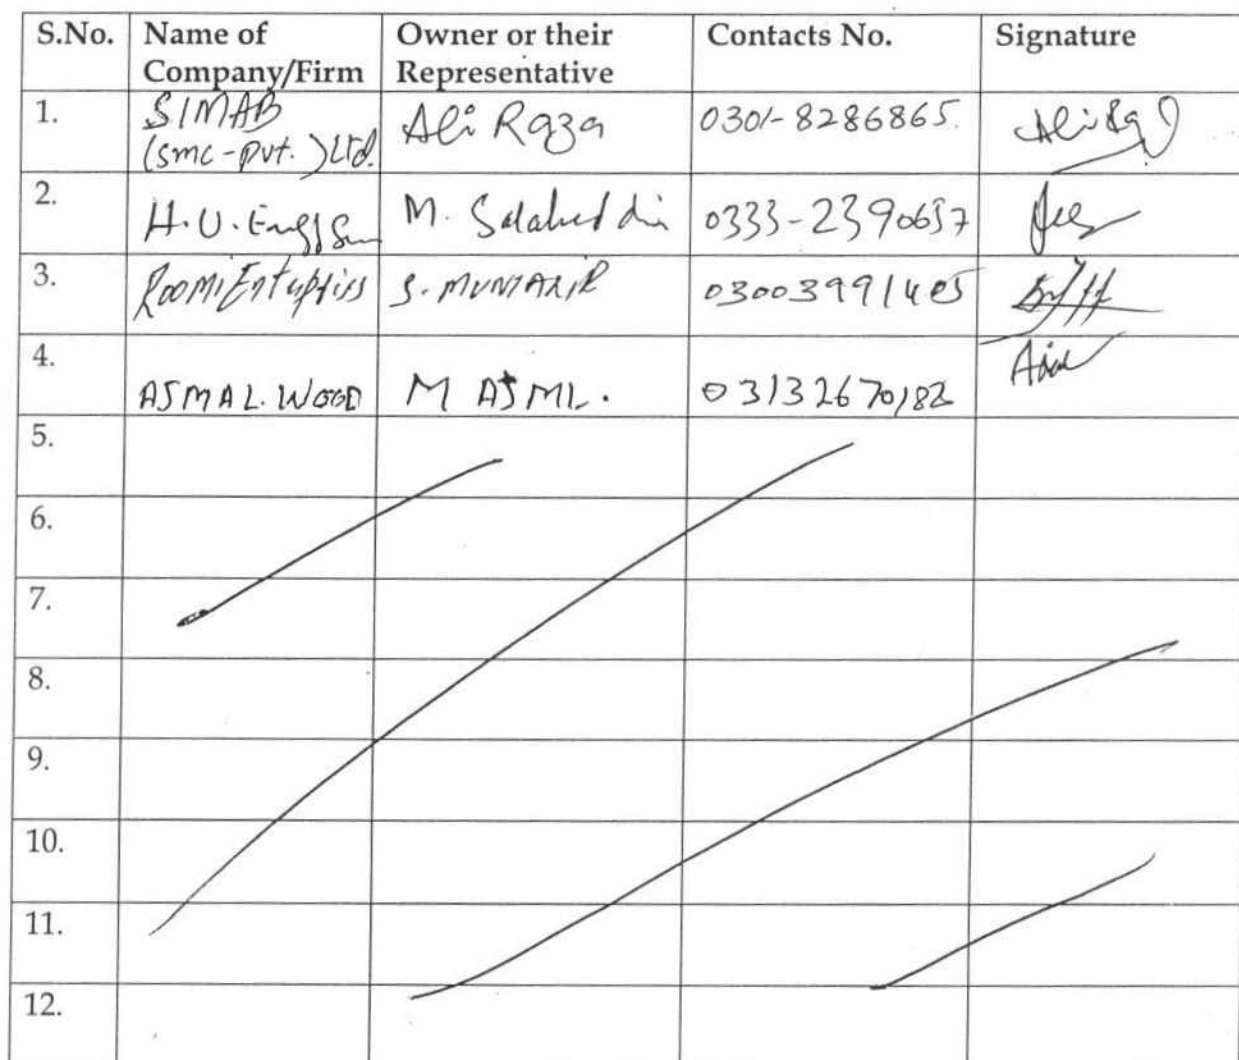 S.No. Name of Company/Firm Owner or their Representative Contacts No. Signature
1. SIMAB (smc-pvt.) Ltd. Ali Raza 0301-8286865.
2. H.U. Engg M. Salahuddin 0333-2390637
3. Roomi Enterprises S. MUNTAZIR 03003991405
4. ASMAL. WOOD M ASML. 03132670182
5.
6.
7.
8.
9.
10.
11.
12.